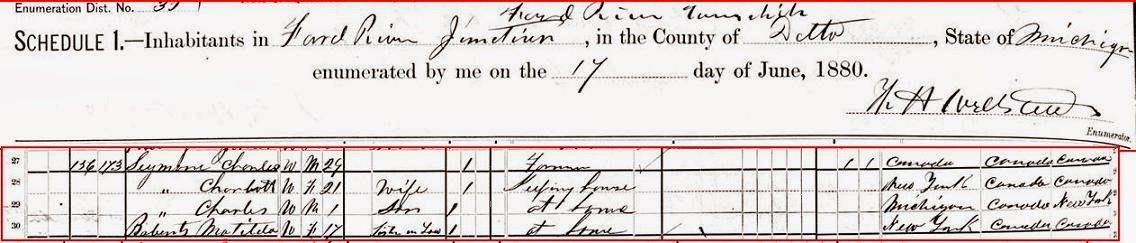 Enumeration Dist. No. 35
Ford River Township
SCHEDULE 1.—Inhabitants in Ford River Junction, in the County of Delta, State of Michigan
enumerated by me on the 17 day of June, 1880.
Enumerator.
27 136 173 Seymore Charles W M 29 1 1 1 Canada Canada Canada
28 " Charlott W F 21 Wife 1 Keeping house New York Canada Canada
29 " Charles W M 1 Son 1 at home Michigan Canada New York
30 Matilda W F 17 Sister in Law 1 at home New York Canada Canada